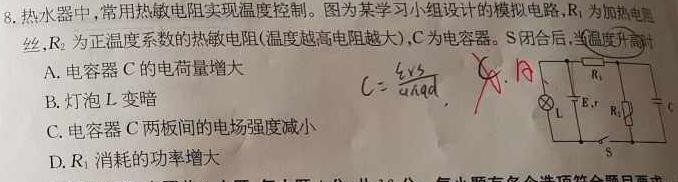 8. 热水器中,常用热敏电阻实现温度控制。图为某学习小组设计的模拟电路,R₁ 为加热电阻
丝,R₂ 为正温度系数的热敏电阻(温度越高电阻越大),C为电容器。S闭合后,当温度升高时
A. 电容器 C 的电荷量增大
B. 灯泡 L 变暗
C. 电容器 C 两板间的电场强度减小
D. R₁ 消耗的功率增大
C = εrs / 4πkd
A
R₁
L
E,r
R₂
C
S